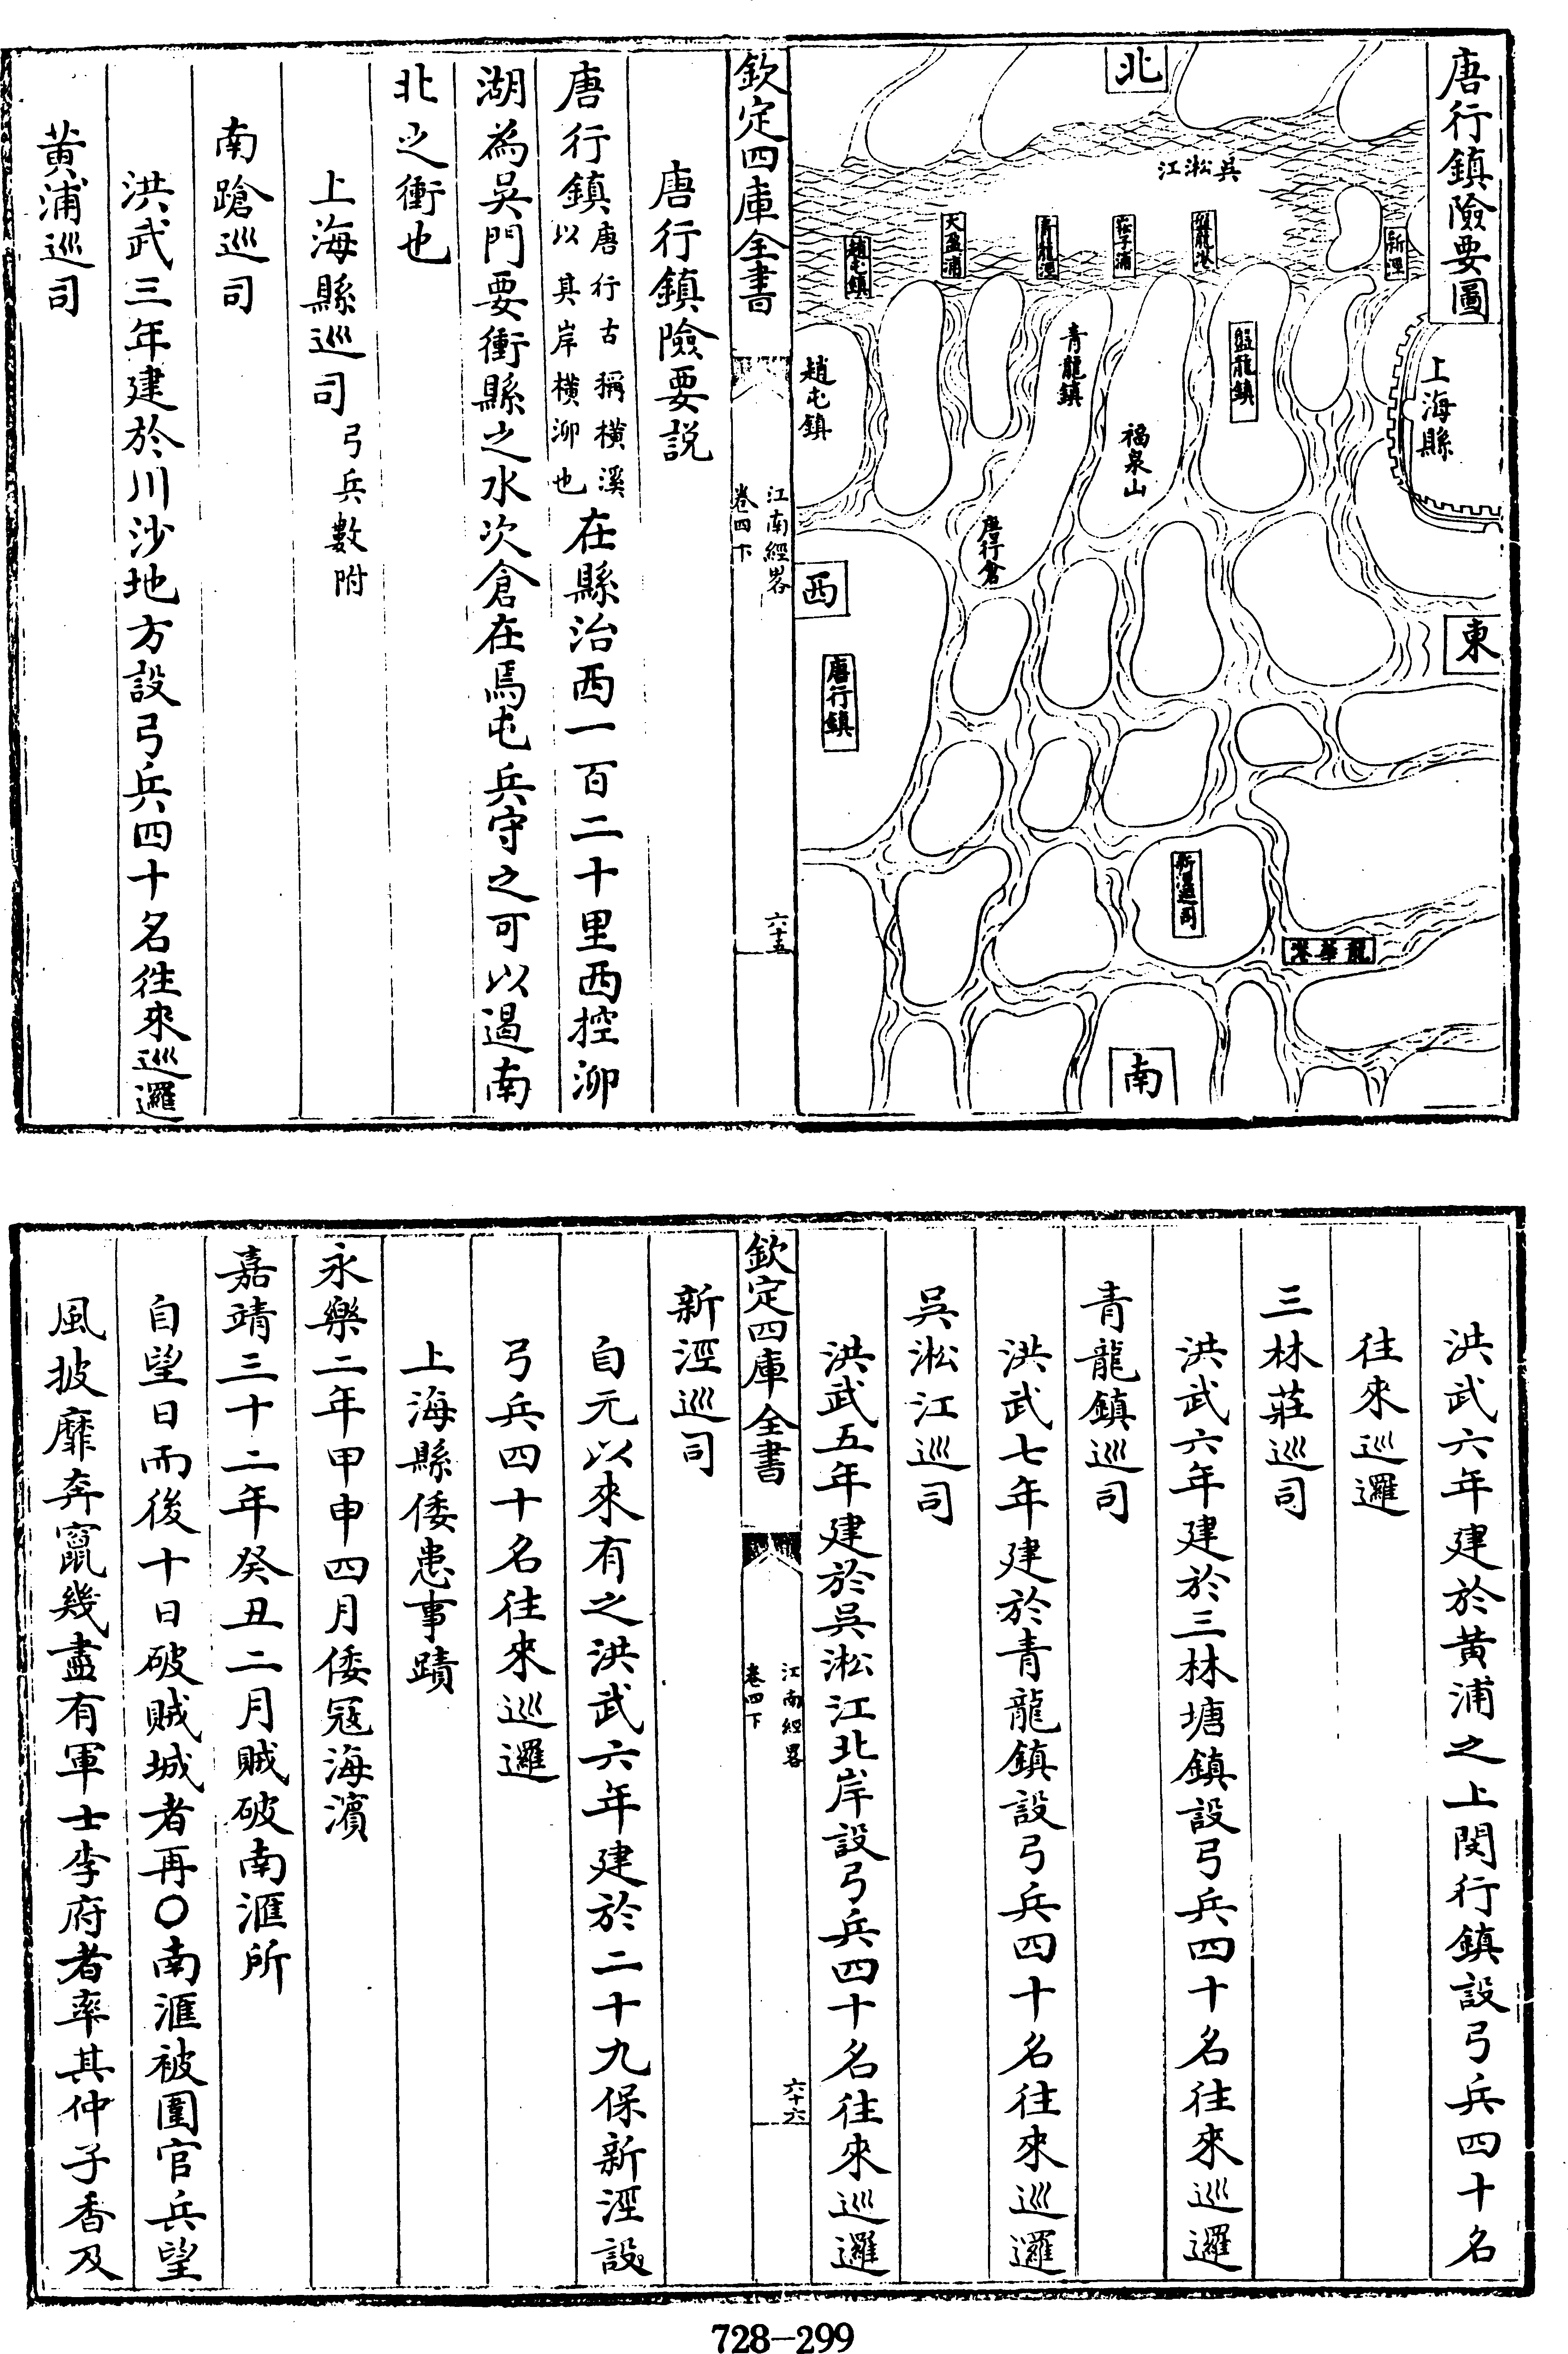 唐行鎮險要圖
北
吳淞江
新涇
盤龍港
大盈浦
趙屯鎮
上海縣
盤龍鎮
青龍鎮
福泉山
趙屯鎮
唐行倉
西
東
唐行鎮
新涇巡司
龍華港
南
欽定四庫全書
江南經畧
卷四下
六十五
唐行鎮險要説
唐行鎮唐行古稱橫溪以其岸橫泖也在縣治西一百二十里西控泖
湖為吳門要衝縣之水次倉在焉屯兵守之可以遏南
北之衝也
上海縣巡司弓兵數附
南蹌巡司
洪武三年建於川沙地方設弓兵四十名徃來巡邏
黄浦巡司
洪武六年建於黄浦之上閔行鎮設弓兵四十名
往來巡邏
三林莊巡司
洪武六年建於三林塘鎮設弓兵四十名往來巡邏
青龍鎮巡司
洪武七年建於青龍鎮設弓兵四十名往來巡邏
吳淞江巡司
洪武五年建於吳淞江北岸設弓兵四十名往來巡邏
欽定四庫全書
江南經畧
卷四下
六十六
新涇巡司
自元以來有之洪武六年建於二十九保新涇設
弓兵四十名往來巡邏
上海縣倭患事蹟
永樂二年甲申四月倭寇海濱
嘉靖三十二年癸丑二月賊破南滙所
自望日而後十日破賊城者再〇南滙被圍官兵望
風披靡奔竄幾盡有軍士李府者率其仲子香及
728-299